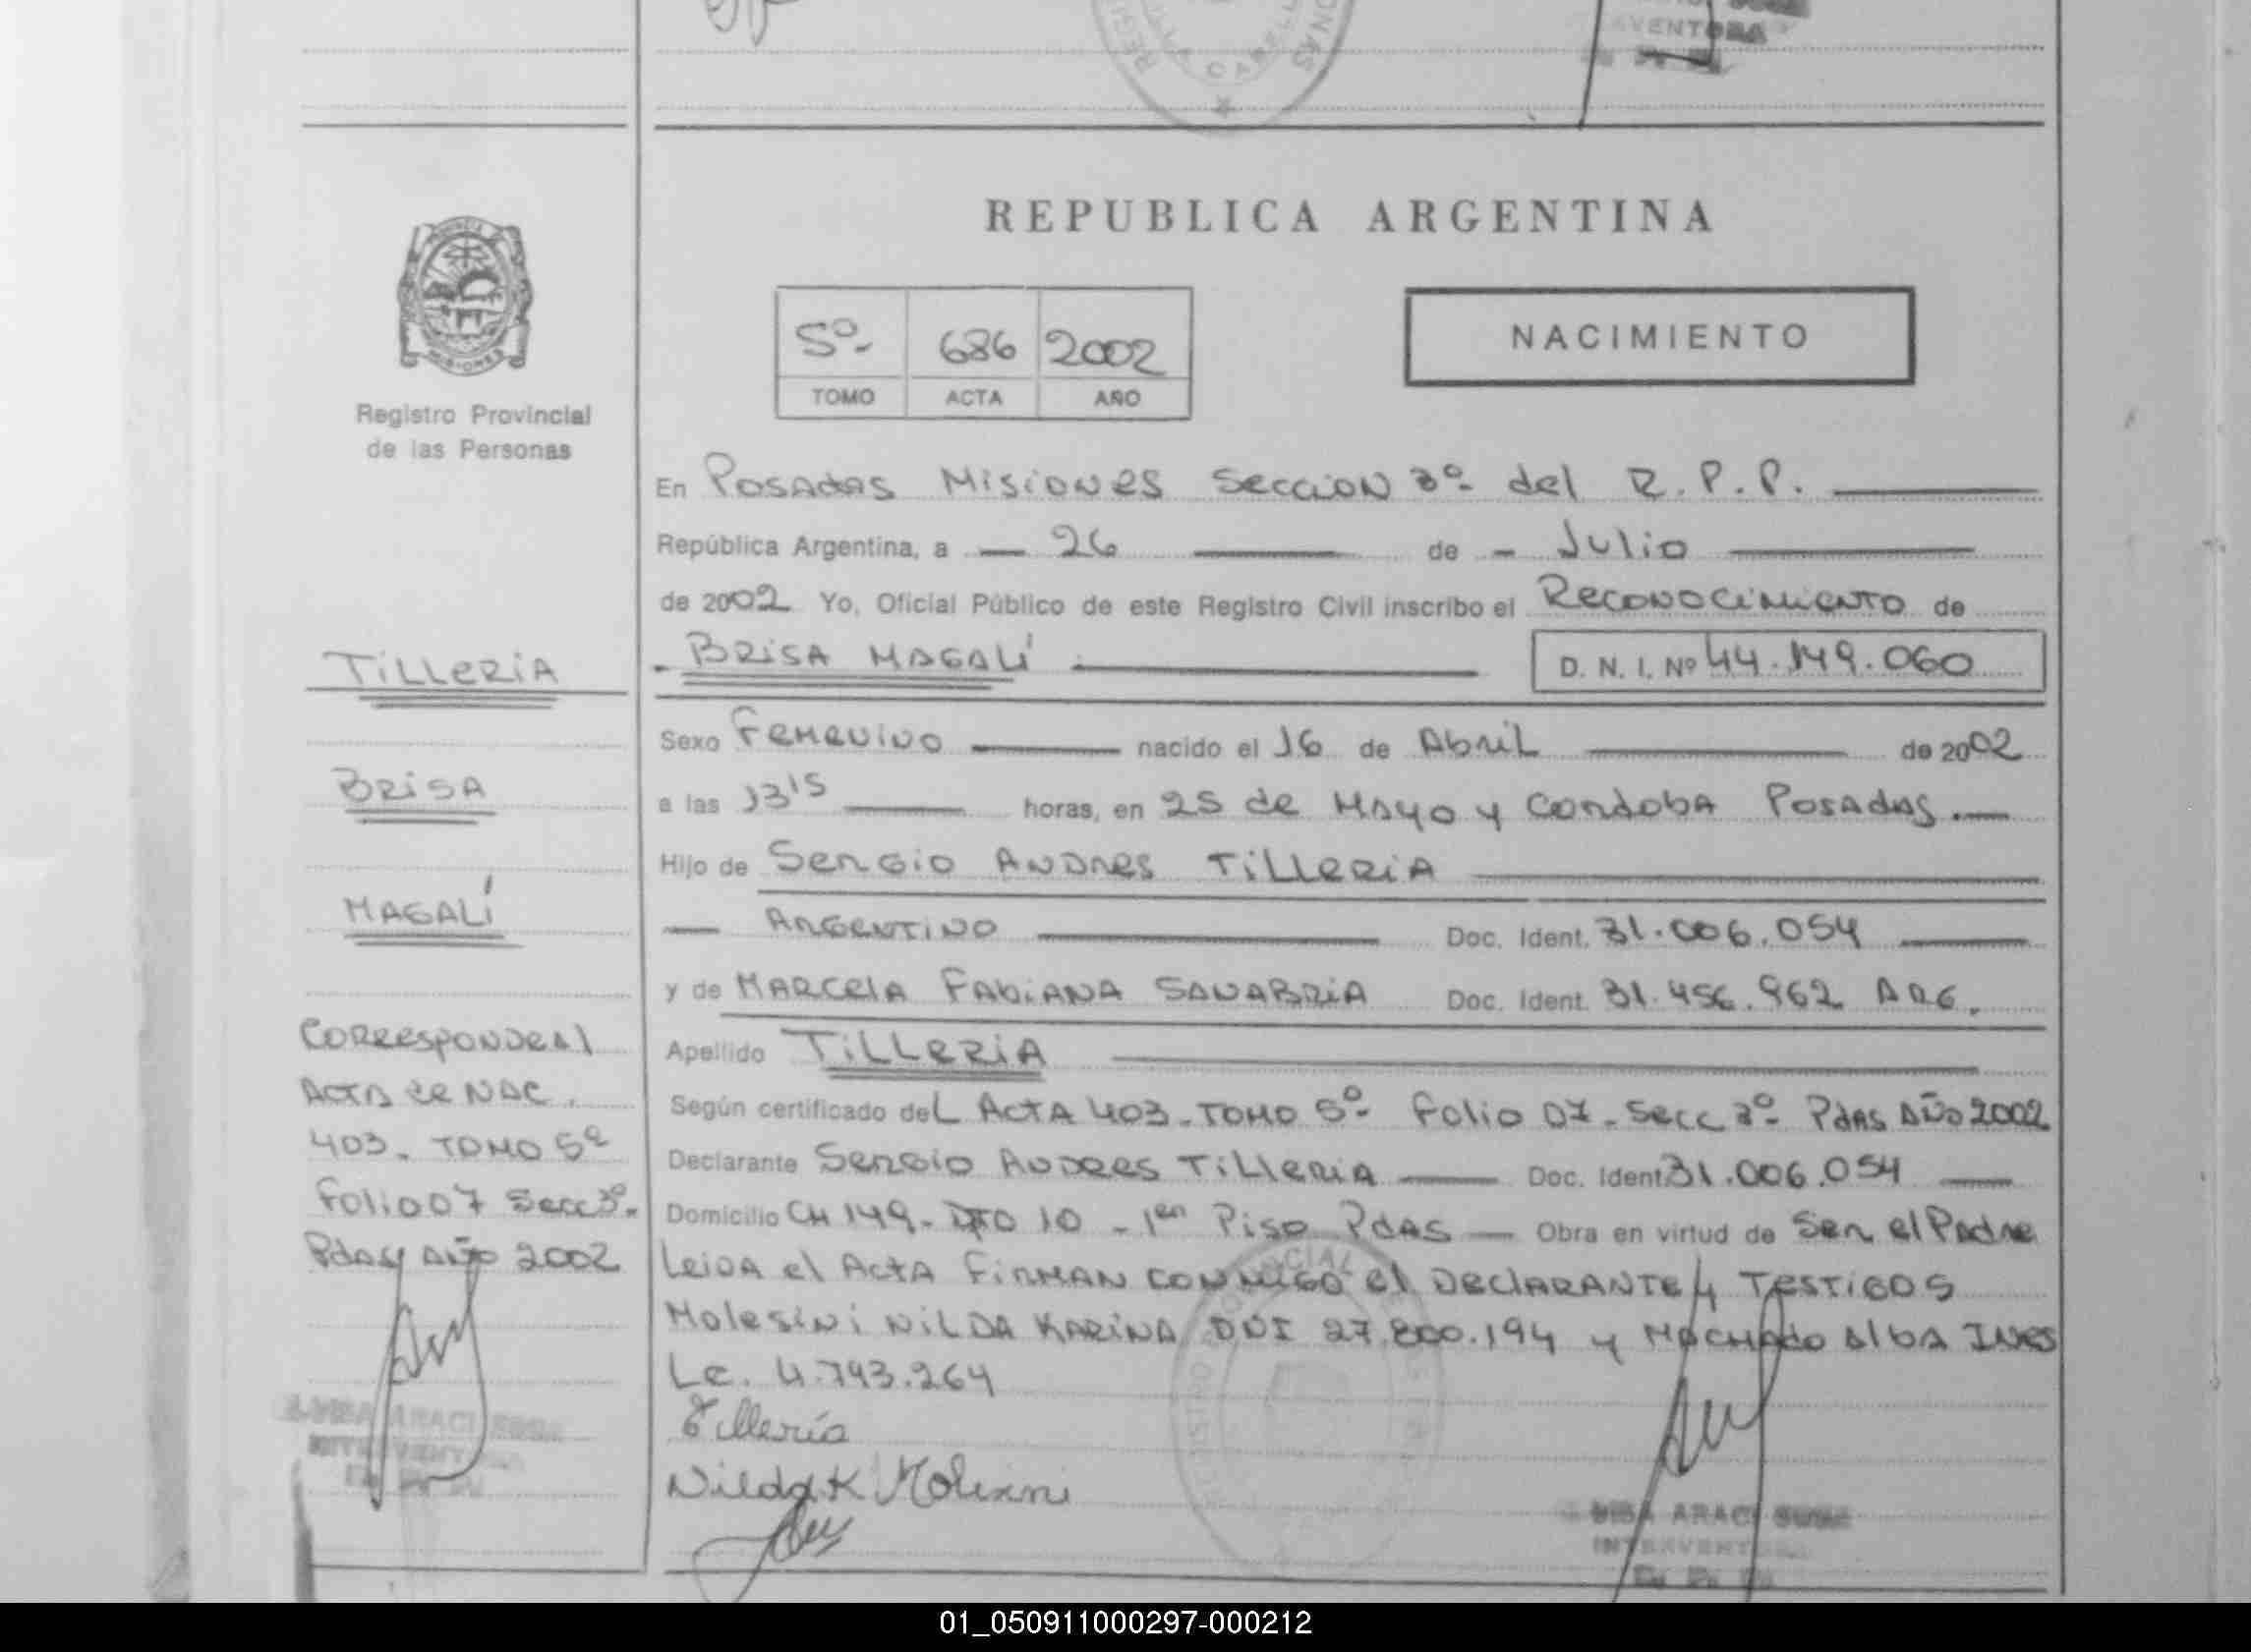 AVENTORA
REPUBLICA ARGENTINA
5º- 686 2002
TOMO ACTA AÑO
NACIMIENTO
MISIONES
Registro Provincial
de las Personas
En Posadas Misiones Seccion 3º del R.P.P.
República Argentina, a 26 de Julio
de 2002 Yo, Oficial Público de este Registro Civil inscribo el Reconocimiento de
BRISA MAGALÍ D. N. I. Nº 44.149.060
Sexo Femenino nacido el 16 de Abril de 2002
a las 13 15 horas, en 25 de Mayo y Cordoba Posadas.
Hijo de Sergio Andres Tilleria
Argentino Doc. Ident. 31.006.054
y de Marcela Fabiana Sanabria Doc. Ident. 31.456.962 ARG.
Apellido Tilleria
Según certificado del Acta 403 - Tomo 5º- Folio 07 - Secc 3º- Pdas Año 2002
Declarante Sergio Andres Tilleria Doc. Ident. 31.006.054
Domicilio CH 149 - DTO 10 - 1er Piso Pdas Obra en virtud de Ser el Padre
Leida el Acta Firman conmigo el Declarante y Testigos
Molesini Nilda Karina DNI 27.800.194 y Machado Alba Ines
Lc. 4.793.264
Tillería
Nilda K Molesini
ARACI
INTERVENTORA
TILLERIA
BRISA
MAGALÍ
Corresponde al
Acta de Nac.
403. Tomo 5º
Folio 07 Secc 3º-
Pdas Año 2002
ARACI
INTERVENTORA
01_050911000297-000212